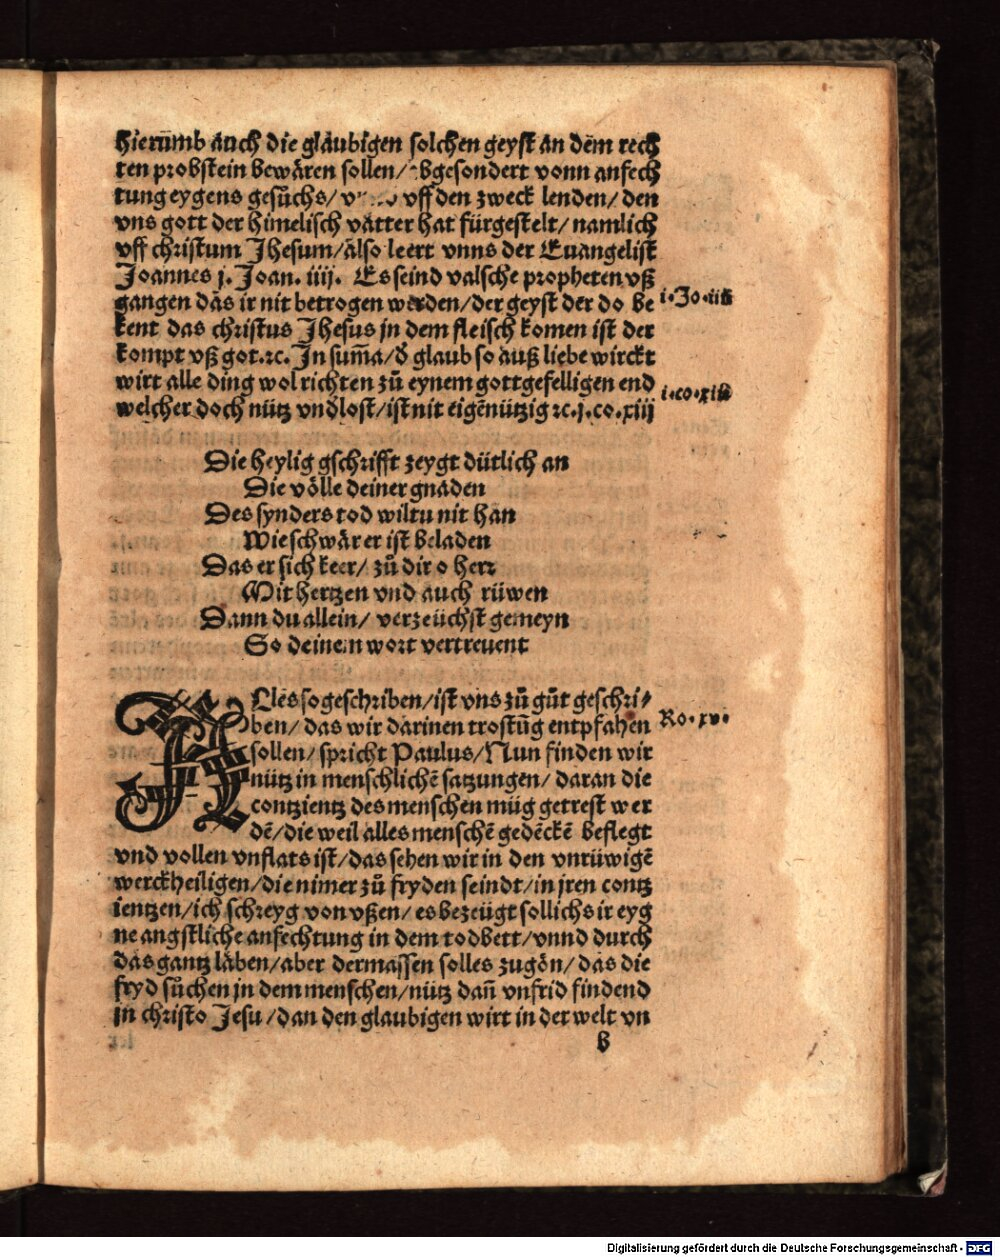 hierum̄b auch die glaubigen solchen geyst an dem rech
ten probstein bewären sollen/ abgesondert vonn anfech
tung eygens gesůchs/ vff den zweck lenden/ den
vns gott der himelisch vatter hat fürgestelt/ namlich
vff christum Jhesum/ also leert vnns der Euangelist
Joannes j. Joan. iiij. Es seind valsche propheten vß
gangen das ir nit betrogen werden/ der geyst der do be
kent das christus Jhesus in dem fleisch komen ist der
kompt vß got.⁊c. In sum̄a/ d̕ glaub so auß liebe wirckt
wirt alle ding wol richten zů eynem gottgefelligen end
welcher doch nütz vnd̕lost/ ist nit eigēnützig ⁊c. j. co. xiij
i. Jo. iiii
i. co. xiii
Die heylig gschrifft zeygt dütlich an
Die völle deiner gnaden
Des synders tod wiltu nit han
Wie schwär er ist beladen
Das er sich keer/ zů dir o herr
Mit hertzen vnd auch rüwen
Dann du allein/ verzeüchst gemeyn
So deinem wort vertreuent
ALles so geschriben/ ist vns zů gůt geschri-
ben/ das wir darinen trostūg entpfahen
sollen/ spricht Paulus/ Nun finden wir
nütz in menschlichē satzungen/ daran die
contzientz des menschen müg getrest wer
dē/ die weil alles menschē gedēckē beflegt
vnd vollen vnflats ist/ das sehen wir in den vnrüwigē
werckheiligen/ die nimer zů fryden seindt/ in jren contz
ientzen/ ich schreyg von vßen/ es bezeügt sollichs ir eyg
ne angstliche anfechtung in dem todbett/ vnnd durch
das gantz läben/ aber dermassen solles zugön/ das die
fryd sůchen in dem menschen/ nütz dan̄ vnfrid findend
in christo Jesu/ dan den glaubigen wirt in der welt vn
Ro. xv.
b
Digitalisierung gefördert durch die Deutsche Forschungsgemeinschaft - DFG